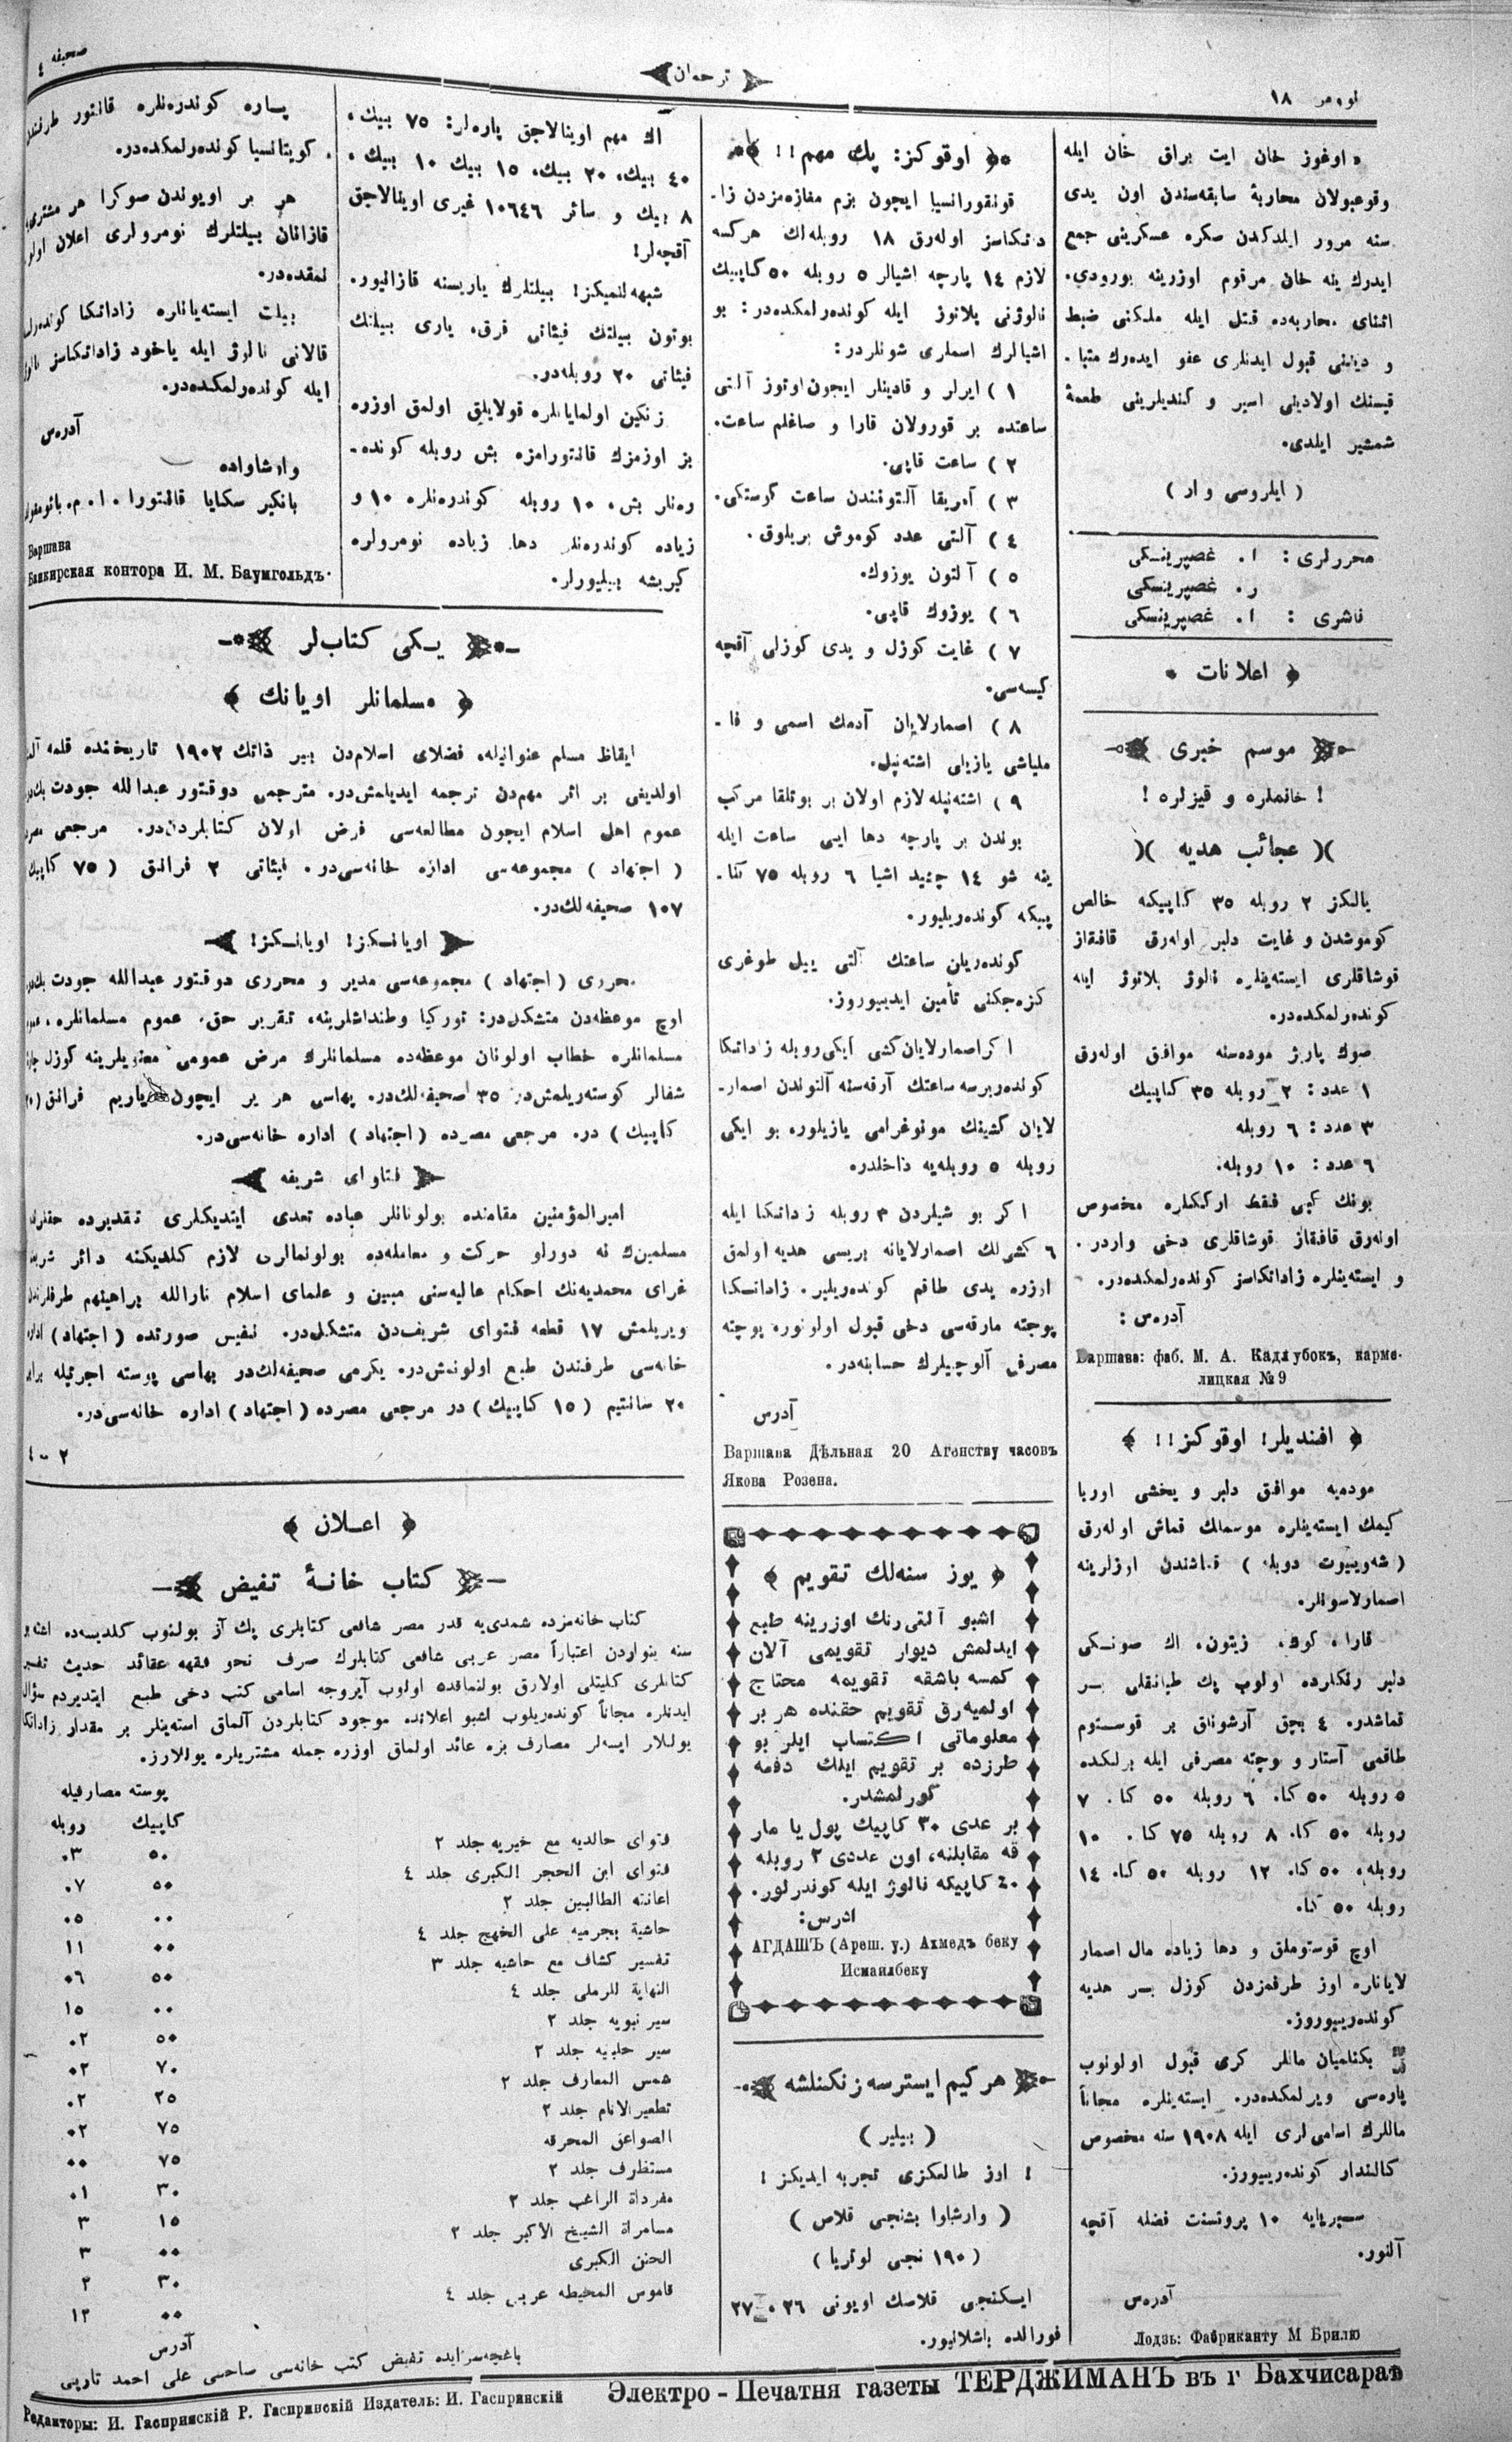 نومر ١٨
ترجمان
صحيفه ٤
اوغوز خان ايت براق خان ايله
وقوعبولان محاربهٔ سابقه‌سندن اون يدى
سنه مرور ايلدكدن صكره عسكرينى جمع
ايدرك ينه خان مرقوم اوزرينه يورودي.
اثناى محاربه‌ده قتل ايله ملكنى ضبط
و دينى قبول ايدنلرى عفو ايده‌رك متبا-
قيسنك اولادينى اسير و كنديلرينى طعمهٔ
شمشير ايلدى.
( ايلروسى وار )
محررلرى : ا. غصپرينسكى
ر. غصپرينسكى
ناشرى : ا. غصپرينسكى
اعلانات
موسم خبرى
! خانملره و قيزلره !
)( عجائب هديه )(
يالكز ٢ روبله ٣٥ كاپيكه خالص
كوموشدن و غايت دلبر اوله‌رق قافقاز
قوشاقلرى ايسته‌ينلره نالوژ پلاتوژ ايله
كونده‌رلمكده‌در.
صوك پاريژ موده‌سنه موافق اوله‌رق
١ عدد : ٢ روبله ٣٥ كاپيك
٣ عدد : ٦ روبله
٦ عدد : ١٠ روبله.
بونك كبى فقط ارككلره مخصوص
اوله‌رق قافقاز قوشاقلرى دخى واردر.
و ايسته‌ينلره زاداتكاسز كونده‌رلمكده‌در.
آدره‌س :
Варшава: фаб. М. А. Кадлубокъ, карме-
лицкая №9
افنديلر! اوقوكز!!
موده‌يه موافق دلبر و يخشى اوروپا
كيمك ايسته‌ينلره موسمالك قماش اوله‌رق
( شه‌وييوت دوبله ) قماشندن اوزلرينه
اصمارلاسونلر.
قارا، كوك، زيتون، اك صوڭكى
دلبر رنكلرده اولوب پك طيانقلى بر
قماشدر. ٤ بچق آرشونلق بر قوستوم
طاقمى آستار و پوچته مصرفى ايله برلكده
٥ روبله ٥٠ كا. ٦ روبله ٥٠ كا. ٧
روبله ٥٠ كا. ٨ روبله ٧٥ كا. ١٠
روبله، ٥٠ كا. ١٢ روبله ٥٠ كا. ١٤
روبله ٥٠ كا.
اوچ قوستوملق و دها زياده مال اسمار
لايانلره اوز طرفمزدن كوزل بر هديه
كونده‌رييوروز.
بكنلميان ماللر كرى قبول اولونوب
پاره‌سى ويرلمكده‌در. ايسته‌ينلره مجاناً
ماللرك اسامى‌لرى ايله ١٩٠٨ سنه مخصوص
كالندار كونده‌رييورز.
سيبريايه ١٠ پروتسنت فضله آقچه
آلنور.
آدره‌س
Лодзь: Фабриканту М Брилю
اوقوكز: پك مهم!!
قونقورانسيا ايچون بزم مغازه‌مزدن زا-
داتكاسز اوله‌رق ١٨ روبله‌لك هركسه
لازم ١٤ پارچه اشيالر ٥ روبله ٥٠ كاپيك
نالوژنى پلاتوژ ايله كونده‌رلمكده‌در: بو
اشيالرك اسملرى شونلردر:
١ ) ايرلر و قادينلر ايچون اوتوز آلتى
ساعتده بر قورولان قارا و صاغلم ساعت.
٢ ) ساعت قابى.
٣ ) آمريقا آلتونندن ساعت كوستكى.
٤ ) آلتى عدد كوموش بريلوق.
٥ ) آلتون يوزوك.
٦ ) يوزوك قابى.
٧ ) غايت كوزل و يدى كوزلى آقچه
كيسه‌سى.
٨ ) اصمارلايان آدمك اسمى و فا-
مليا‌شى يازيلى اشته‌مپل.
٩ ) اشته‌مپله لازم اولان بر بوتلقا مركب
بوندن بر پارچه دها ايى ساعت ايله
ينه شو ١٤ چشيد اشيا ٦ روبله ٧٥ كا-
پيكه كونده‌ريليور.
كونده‌ريلن ساعتك آلتى ييل طوغرى
كزه‌جكنى تأمين ايدييوروز.
اكر اصمارلايان كشى ايكى روبله زاداتكا
كونده‌ررسه ساعتك آرقه‌سنه آلتوندن اصمار-
لايان كشينك مونوغرامى يازيلور. بو ايكى
روبله ٥ روبله‌يه داخلدر.
اكر بو شيلردن ٣ روبله زداتكا ايله
٦ كشى‌لك اصمارلايانه بريسى هديه اولمق
اوزره يدى طاقم كونده‌ريلير. زاداتكا
پوچته مارقه‌سى دخى قبول اولونور. پوچته
مصرفى آلوچيلرك حسابنه‌در.
آدرس
Варшава Дѣльная 20 Агенству часовъ
Якова Розена.
يوز سنه‌لك تقويم
اشبو آلتى رنك اوزرينه طبع
ايدلمش ديوار تقويمى آلان
كمسه باشقه تقويمه محتاج
اولميه‌رق تقويم حقنده هر بر
معلوماتى اكتساب ايلر بو
طرزده بر تقويم ايلك دفعه
كورلمشدر.
بر عدى ٣٠ كاپيك پول يا مار
قه مقابلنه، اون عددى ٢ روبله
٤٠ كاپيكه نالوژ ايله كوندرلور.
ادرس:
АГДАШЪ (Ареш. у.) Ахмедъ беку
Исмаилбеку
هركيم ايسترسه زنكنلشه
( بيلير )
! اوز طالعكزى تجربه ايديكز !
( وارشاوا بشنجى قلاص )
( ١٩٠ نجى لوتريا )
ايكنجى قلاصك اويونى ٢٦، ٢٧
فورالده باشلانيور.
اك مهم اوينالاجق پاره‌لر: ٧٥ بيك،
٤٠ بيك، ٢٠ بيك، ١٥ بيك ١٠ بيك،
٨ بيك و سائر ١٠٦٤٦ غيرى اوينالاجق
آقچه‌لر!
شبهه لنميكز! بيلتلرك ياريسنه قازانيور.
بوتون بيلتك فيئاتى فرق، يارى بيلتك
فيئاتى ٢٠ روبله‌در.
زنكين اولمايانلره قولايلق اولمق اوزره
بز اوزمزك قانتورامزه بش روبله كونده-
ره‌نلر بش، ١٠ روبله كوندره‌نلره ١٠ و
زياده كوندره‌نلر دها زياده نومرولره
كيريشه بيليورلر.
پاره كوندره‌نلره قانتور طرفندن
كويتانسيا كونده‌رلمكده‌در.
هر بر اويوندن صوكرا هر مشترى‌يه
قازانان بيلتلرك نومرولرى اعلان اولو-
نمقده‌در.
بيلت ايسته‌يانلره زاداتكا كونده‌رلسه
قالانى نالوژ ايله ياخود زاداتكاسز نالوژ
ايله كونده‌رلمكده‌در.
آدره‌س
وارشاواده
بانكير سكايا قانتورا. ا. م. بائومغولد
Варшава
Банкирская контора И. М. Баумгольдъ.
يڭى كتاب‌لر
مسلمانلر اويانك
ايقاظ مسلم عنوانيله، فضلاى اسلام‌دن بير ذاتك ١٩٠٢ تاريخنده قلمه آلمش
اولديغى بر اثر مهم‌دن ترجمه ايديلمش‌در. مترجمى دوقتور عبدالله جودت بك‌در.
عموم اهل اسلام ايچون مطالعه‌سى فرض اولان كتابلردن‌در. مرجعى مصرده
( اجتهاد ) مجموعه‌سى اداره خانه‌سى‌در. فيئاتى ٢ فرانق ( ٧٥ كاپيك
١٠٧ صحيفه‌لك‌در.
اويانڭز! اويانڭز!
محررى ( اجتهاد ) مجموعه‌سى مدير و محررى دوقتور عبدالله جودت بك‌در.
اوچ موعظه‌دن متشكل‌در: توركيا وطنداشلرينه، تقرير حق، عموم مسلمانلره، عموم
مسلمانلره خطاب اولونان موعظه‌ده مسلمانلرك مرض عمومى معنويلرينه كوزل چاره
شفالر كوسته‌ريلمش‌در ٣٥ صحيفه‌لك‌در. بهاسى هر بر ايچون ياريم فرانق (٢٠
كاپيك ) در. مرجعى مصرده ( اجتهاد ) اداره خانه‌سى‌در.
فتاواى شريفه
اميرالمؤمنين مقامنده بولونانلر عباده تعدى ايتديكلرى تقديرده حقلرنده
مسلمين‌ك نه دورلو حركت و معامله‌ده بولونمالرى لازم كلديكنه دائر شريعت
غراى محمديه‌نك احكام عاليه‌سنى مبين و علماى اسلام نارالله براهينهم طرفلرندن
ويريلمش ١٧ قطعه فتواى شريف‌دن متشكل‌در. نفيس صورتده ( اجتهاد ) اداره
خانه‌سى طرفندن طبع اولونمش‌در. يكرمى صحيفه‌لك‌در بهاسى پوسته اجرتيله برابر
٢٠ سانتيم ( ١٥ كاپيك ) در مرجعى مصرده ( اجتهاد ) اداره خانه‌سى‌در.
٢ - ٤
اعلان
كتاب خانهٔ تفيض
كتاب خانه‌مزده شمدى‌يه قدر مصر شافعى كتابلرى پك آز بولنوب كلديسه‌ده اشبو
سنه ينواردن اعتباراً مصر عربى شافعى كتابلرك صرف نحو فقهه عقائد حديث تفسير
كتابلرى كليتلى اولارق بولنماقده اولوب آيروجه اسامى كتب دخى طبع ايتديردم سؤال
ايدنلره مجاناً كونده‌ريلوب اشبو اعلانده موجود كتابلردن آلماق استه‌ينلر بر مقدار زاداتكا
يوللار ايسه‌لر مصارف بزه عائد اولماق اوزره جمله مشتريلره يوللارز.
پوسته مصارفيله
كاپيك روبله
فتواى حالديه مع خيريه جلد ٢ ٥٠ ٠٣
فتواى ابن الحجر الكبرى جلد ٤ ٥٠ ٠٧
اعانته الطالبين جلد ٢ ٠٠ ٠٥
حاشية بجرميه على الخهج جلد ٤ ٠٠ ١١
تفسير كشاف مع حاشيه جلد ٣ ٥٠ ٠٦
النهاية للرملى جلد ٤ ٠٠ ١٥
سير نبويه جلد ٢ ٥٠ ٠٢
سير حلبيه جلد ٢ ٧٠ ٠٢
شمس المعارف جلد ٢ ٢٥ ٠٢
تطعير الانام جلد ٢ ٧٥ ٠٢
الصواعق المحرقه ٧٥ ٠٠
مستظرف جلد ٢ ٣٠ ٠١
مفرداة الراغب جلد ٢ ١٥ ٣
مسامراة الشيخ الاكبر جلد ٢ ٠٠ ٣
الحنن الكبرى ٣٠ ٢
قاموس المحيطه عربى جلد ٤ ٠٠ ١٢
آدرس
باغچه‌سرايده تفيض كتب خانه‌سى صاحبى على احمد تارپى
Редакторы: И. Гаспринскій Р. Гаспринскій Издатель: И. Гаспринскій
Электро-Печатня газеты ТЕРДЖИМАНЪ въ г Бахчисараѣ